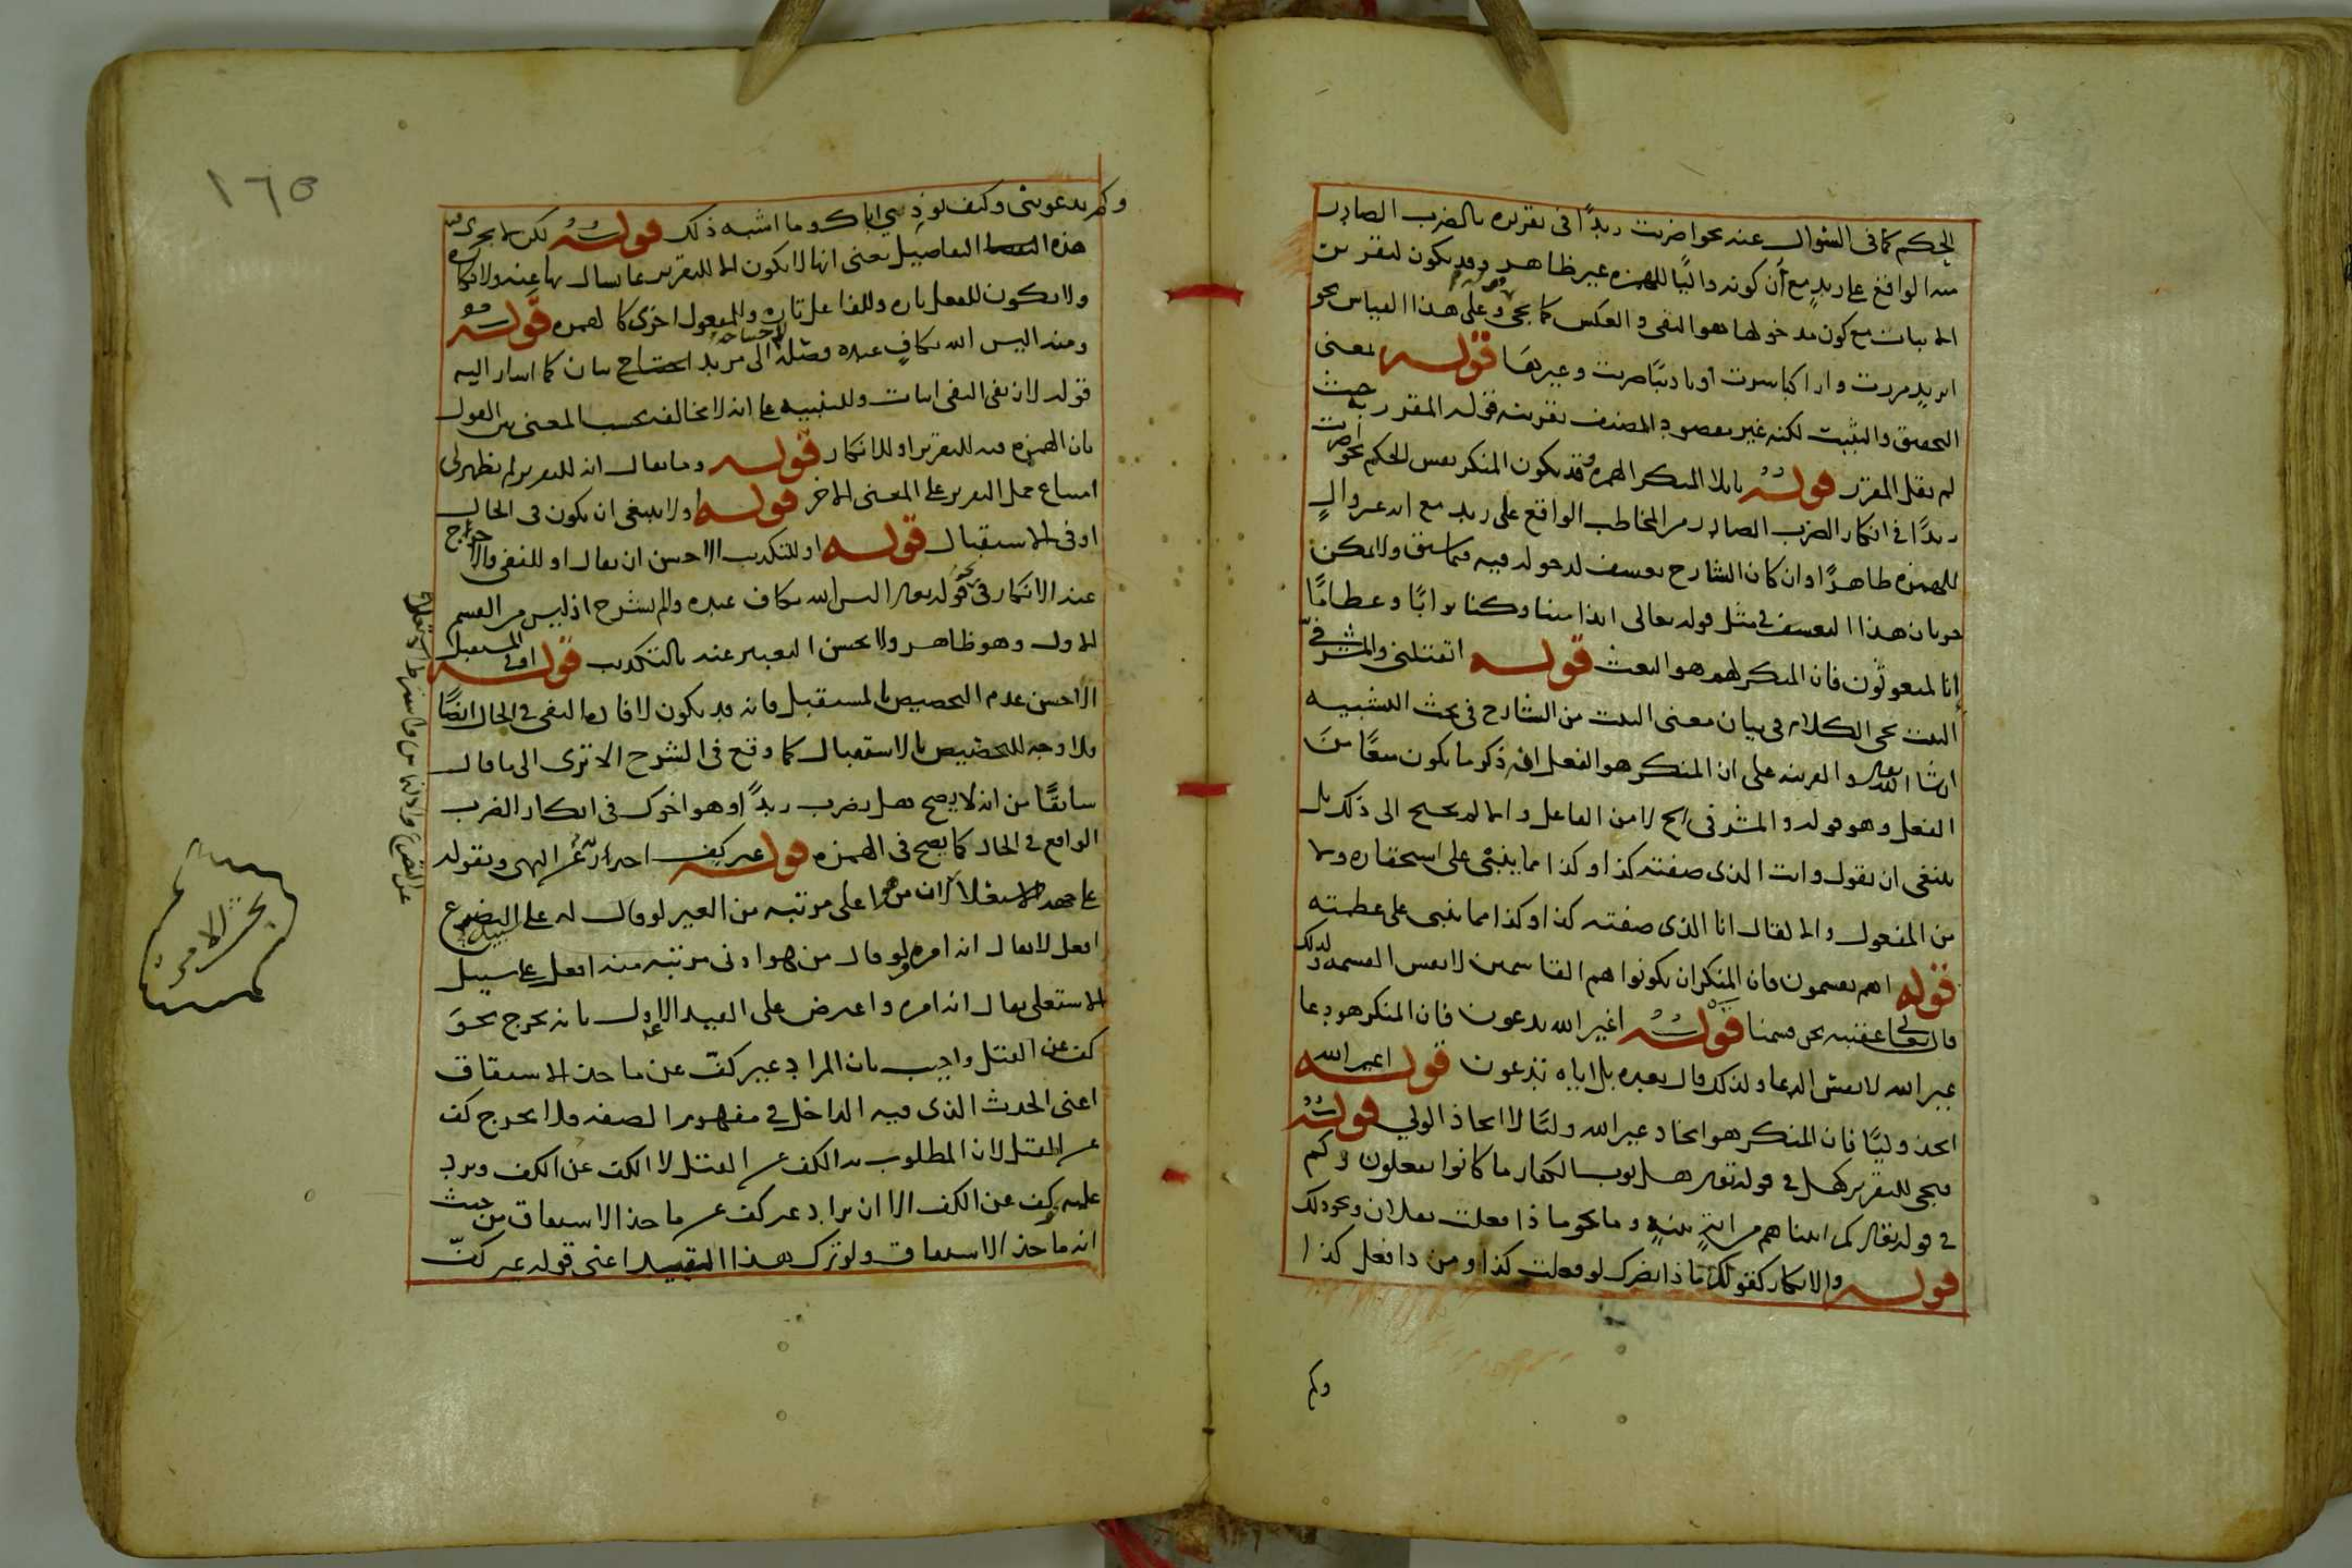 الحكم كما فى السؤال عنه نحو اضربت زيدًا فى تقريره بالضرب الصادر
منه الواقع على زيد مع أن كونه واليًا للهمزة غير ظاهر وقد يكون لتقرير
الاثبات مع كون مدخولها هو النفى والعكس كما يجئ وعلى هذا القياس نحو
ابزيد مررت واراكبا سرت اوتاديبًا ضربت وغيرها قوله بمعنى
التحقيق والتثبيت لكنه غير مقصود المصنف بقرينة قوله المقرر به حيث
لم يقل المقرر قوله بايلاء المنكر الهمزة وقد يكون المنكر نفس الحكم نحو اضربت
زيدًا فى انكار الضرب الصادر من المخاطب الواقع على زيد مع انه غير والٍ
للهمزة ظاهرًا وان كان الشارح تعسف لدخوله فيه فيما سبق ولا يمكن
جريان هذا التعسف فى مثل قوله تعالى ائذا متنا وكنا ترابًا وعظامًا
إنا لمبعوثون فان المنكر لهم هو البعث قوله اتقتلنى والمشرفى
البيت يجئ الكلام فى بيان معنى البيت من الشارح فى بحث التشبيه
انشاء الله تعالى والقرينة على ان المنكر هو الفعل انه ذكر ما يكون مبعًا من
الفعل وهو قوله والمشرفى الخ لا من الفاعل والا لم يحتج الى ذلك بل
ينبغى ان يقول وانت الذى صفته كذا وكذا مما ينبئ على استحقاره ولا
من المفعول والا لقال انا الذى صفته كذا وكذا مما ينبئ على عظمته
قوله اهم يقسمون فان المنكر ان يكونوا هم القاسمين لا نفس القسمة ولذلك
قال تعالى عقيبه نحن قسمنا قوله اغير الله تدعون فان المنكر هو دعاء
غير الله لا نفس الدعاء ولذلك قال بعده بل اياه تدعون قوله اغير الله
اتخذ وليًا فان المنكر هو اتخاذ غير الله وليًا لا اتخاذ الولي قوله
فيجئ للتقرير كهل فى قوله تعالى هل ثوب الكفار ما كانوا يفعلون وكم
فى قوله تعالى كم اتيناهم من ايةٍ بينةٍ وما نحو ماذا فعلت بفلان ونحو ذلك
قوله والانكار كقولك ماذا يضرك لو فعلت كذا ومن ذا فعل كذا
وكم
١٦٥
وكم تدعونى وكيف توذي اباك وما اشبه ذلك قوله لكن لا يجرى فيه
هذه التفاصيل يعنى انها لا يكون الا للتقرير بما يسأل بها عنه ولانكاره
ولا يكون للفعل تارة وللفاعل تارة والمفعول اخرى كالهمزة قوله
ومنه اليس الله بكافٍ عبده فصله لاحتياجه الى مزيد بيان كما اشار اليه
قوله لان نفى النفى اثبات وللتنبيه على انه لا يخالف بحسب المعنى بين القول
بان الهمزة فيه للتقرير او للانكار قوله وما يقال انه للتقرير لم يظهر لى
امتناع حمل التقرير على المعنى الاخر قوله او لا ينبغى ان يكون فى الحال
او فى الاستقبال قوله او للتكذيب الاحسن ان يقال او للنفى والاخراج
عند الانكار فى نحو قوله تعالى اليس الله بكاف عبده والم نشرح اذ ليس من القسم
الاول وهو ظاهر ولا يحسن التعبير عنه بالتكذيب قوله او فى المستقبل
الاحسن عدم التخصيص بالمستقبل فانه قد يكون لافادة النفى فى الحال ايضًا
ولا وجه للتخصيص بالاستقبال كما وقع فى الشرح الا ترى الى ما قال
سابقًا من انه لا يصح هل يضرب زيدًا وهو اخوك فى انكار الضرب
الواقع فى الحال كما يصح فى الهمزة قوله غير كف احتراز عن النهى وبقوله
على جهة الاستعلاء لان من هو اعلى مرتبه من الغير لو قال له على سبيل التضرع
افعل لا يقال انه امره ولو قال من هو ادنى مرتبه منه افعل على سبيل
الاستعلى يقال انه امره واعترض على القيد الاول بانه يخرج نحو
كف عن القتل واجيب بان المراد غير كفّ عن ماخذ الاشتقاق
اعنى الحدث الذى فيه الداخل فى مفهوم الصفه فلا يخرج كف
عن القتل لان المطلوب به الكف عن القتل لا الكف عن الكف ويرد
عليه كف عن الكف الا ان يراد غير كف عن ماخذ الاشتقاق من حيث
انه ماخذ الاشتقاق ولو ترك هذا التقييد اعنى قوله غير كفّ
بحث الامر